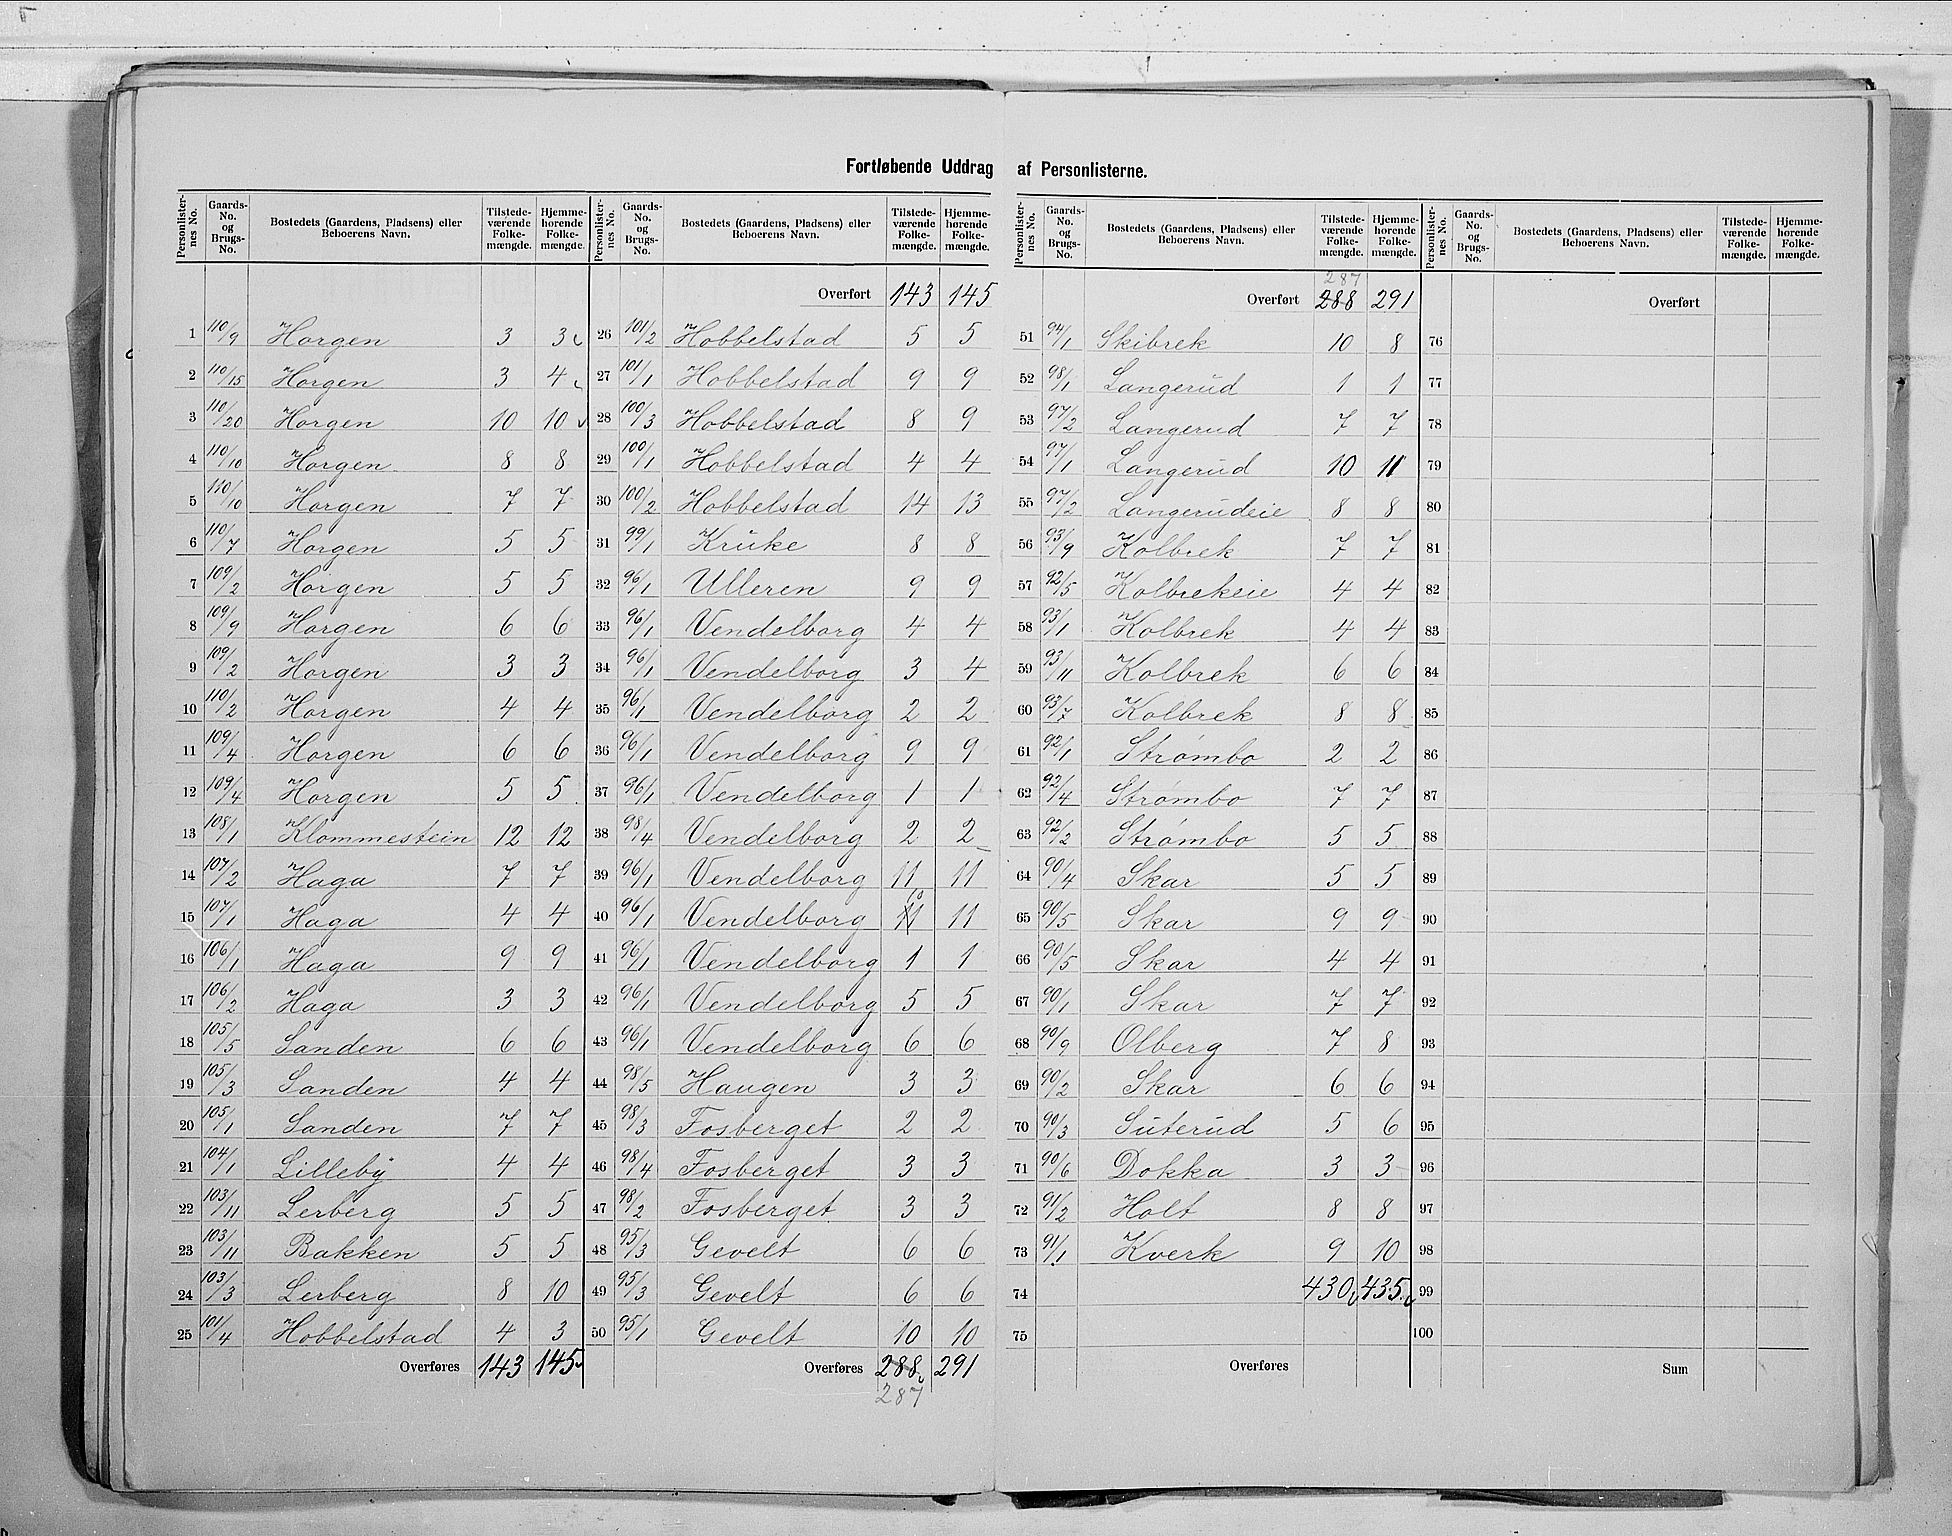 Fortløbende Uddrag af Personlisterne.
Personlister-nes No. | Gaards-No. og Brugs-No. | Bostedets (Gaardens, Pladsens) eller Beboerens Navn. | Tilstede-værende Folke-mængde. | Hjemme-hørende Folke-mængde.
1 110/9 Horgen 3 3
2 110/15 Horgen 3 4
3 110/20 Horgen 10 10
4 110/10 Horgen 8 8
5 110/10 Horgen 7 7
6 110/7 Horgen 5 5
7 109/2 Horgen 5 5
8 109/9 Horgen 6 6
9 109/2 Horgen 3 3
10 110/2 Horgen 4 4
11 109/4 Horgen 6 6
12 109/4 Horgen 5 5
13 108/1 Klommestein 12 12
14 107/2 Haga 7 7
15 107/1 Haga 4 4
16 106/1 Haga 9 9
17 106/2 Haga 3 3
18 105/5 Sanden 6 6
19 105/3 Sanden 4 4
20 105/1 Sanden 7 7
21 104/1 Lilleby 4 4
22 103/11 Lerberg 5 5
23 103/11 Bakken 5 5
24 103/3 Lerberg 8 10
25 101/4 Hobbelstad 4 3
Overføres 143 145
Personlister-nes No. | Gaards-No. og Brugs-No. | Bostedets (Gaardens, Pladsens) eller Beboerens Navn. | Tilstede-værende Folke-mængde. | Hjemme-hørende Folke-mængde.
Overført 143 145
26 101/2 Hobbelstad 5 5
27 101/1 Hobbelstad 9 9
28 100/3 Hobbelstad 8 9
29 100/1 Hobbelstad 4 4
30 100/2 Hobbelstad 14 13
31 99/1 Kruke 8 8
32 96/1 Ulleren 9 9
33 96/1 Vendelborg 4 4
34 96/1 Vendelborg 3 4
35 96/1 Vendelborg 2 2
36 96/1 Vendelborg 9 9
37 96/1 Vendelborg 1 1
38 98/4 Vendelborg 2 2
39 96/1 Vendelborg 11 11
40 96/1 Vendelborg 11 10 11
41 96/1 Vendelborg 1 1
42 96/1 Vendelborg 5 5
43 96/1 Vendelborg 6 6
44 98/5 Haugen 3 3
45 98/3 Fosberget 2 2
46 98/4 Fosberget 3 3
47 98/2 Fosberget 3 3
48 95/3 Gevelt 6 6
49 95/3 Gevelt 6 6
50 95/1 Gevelt 10 10
Overføres 288 291
287
Personlister-nes No. | Gaards-No. og Brugs-No. | Bostedets (Gaardens, Pladsens) eller Beboerens Navn. | Tilstede-værende Folke-mængde. | Hjemme-hørende Folke-mængde.
287
Overført 288 291
51 94/1 Skibrek 10 8
52 98/1 Langerud 1 1
53 97/2 Langerud 7 7
54 97/1 Langerud 10 11
55 97/2 Langerudeie 8 8
56 93/9 Kolbrek 7 7
57 92/5 Kolbrekeie 4 4
58 93/1 Kolbrek 4 4
59 93/11 Kolbrek 6 6
60 93/7 Kolbrek 8 8
61 92/1 Strømbo 2 2
62 92/4 Strømbo 7 7
63 92/2 Strømbo 5 5
64 90/4 Skar 5 5
65 90/5 Skar 9 9
66 90/5 Skar 4 4
67 90/1 Skar 7 7
68 90/9 Olberg 7 8
69 90/2 Skar 6 6
70 90/3 Suterud 5 6
71 90/6 Dokka 3 3
72 91/2 Holt 8 8
73 91/1 Kverk 9 10
74 430 435
75
Overføres
Personlister-nes No. | Gaards-No. og Brugs-No. | Bostedets (Gaardens, Pladsens) eller Beboerens Navn. | Tilstede-værende Folke-mængde. | Hjemme-hørende Folke-mængde.
Overført
76
77
78
79
80
81
82
83
84
85
86
87
88
89
90
91
92
93
94
95
96
97
98
99
100
Sum